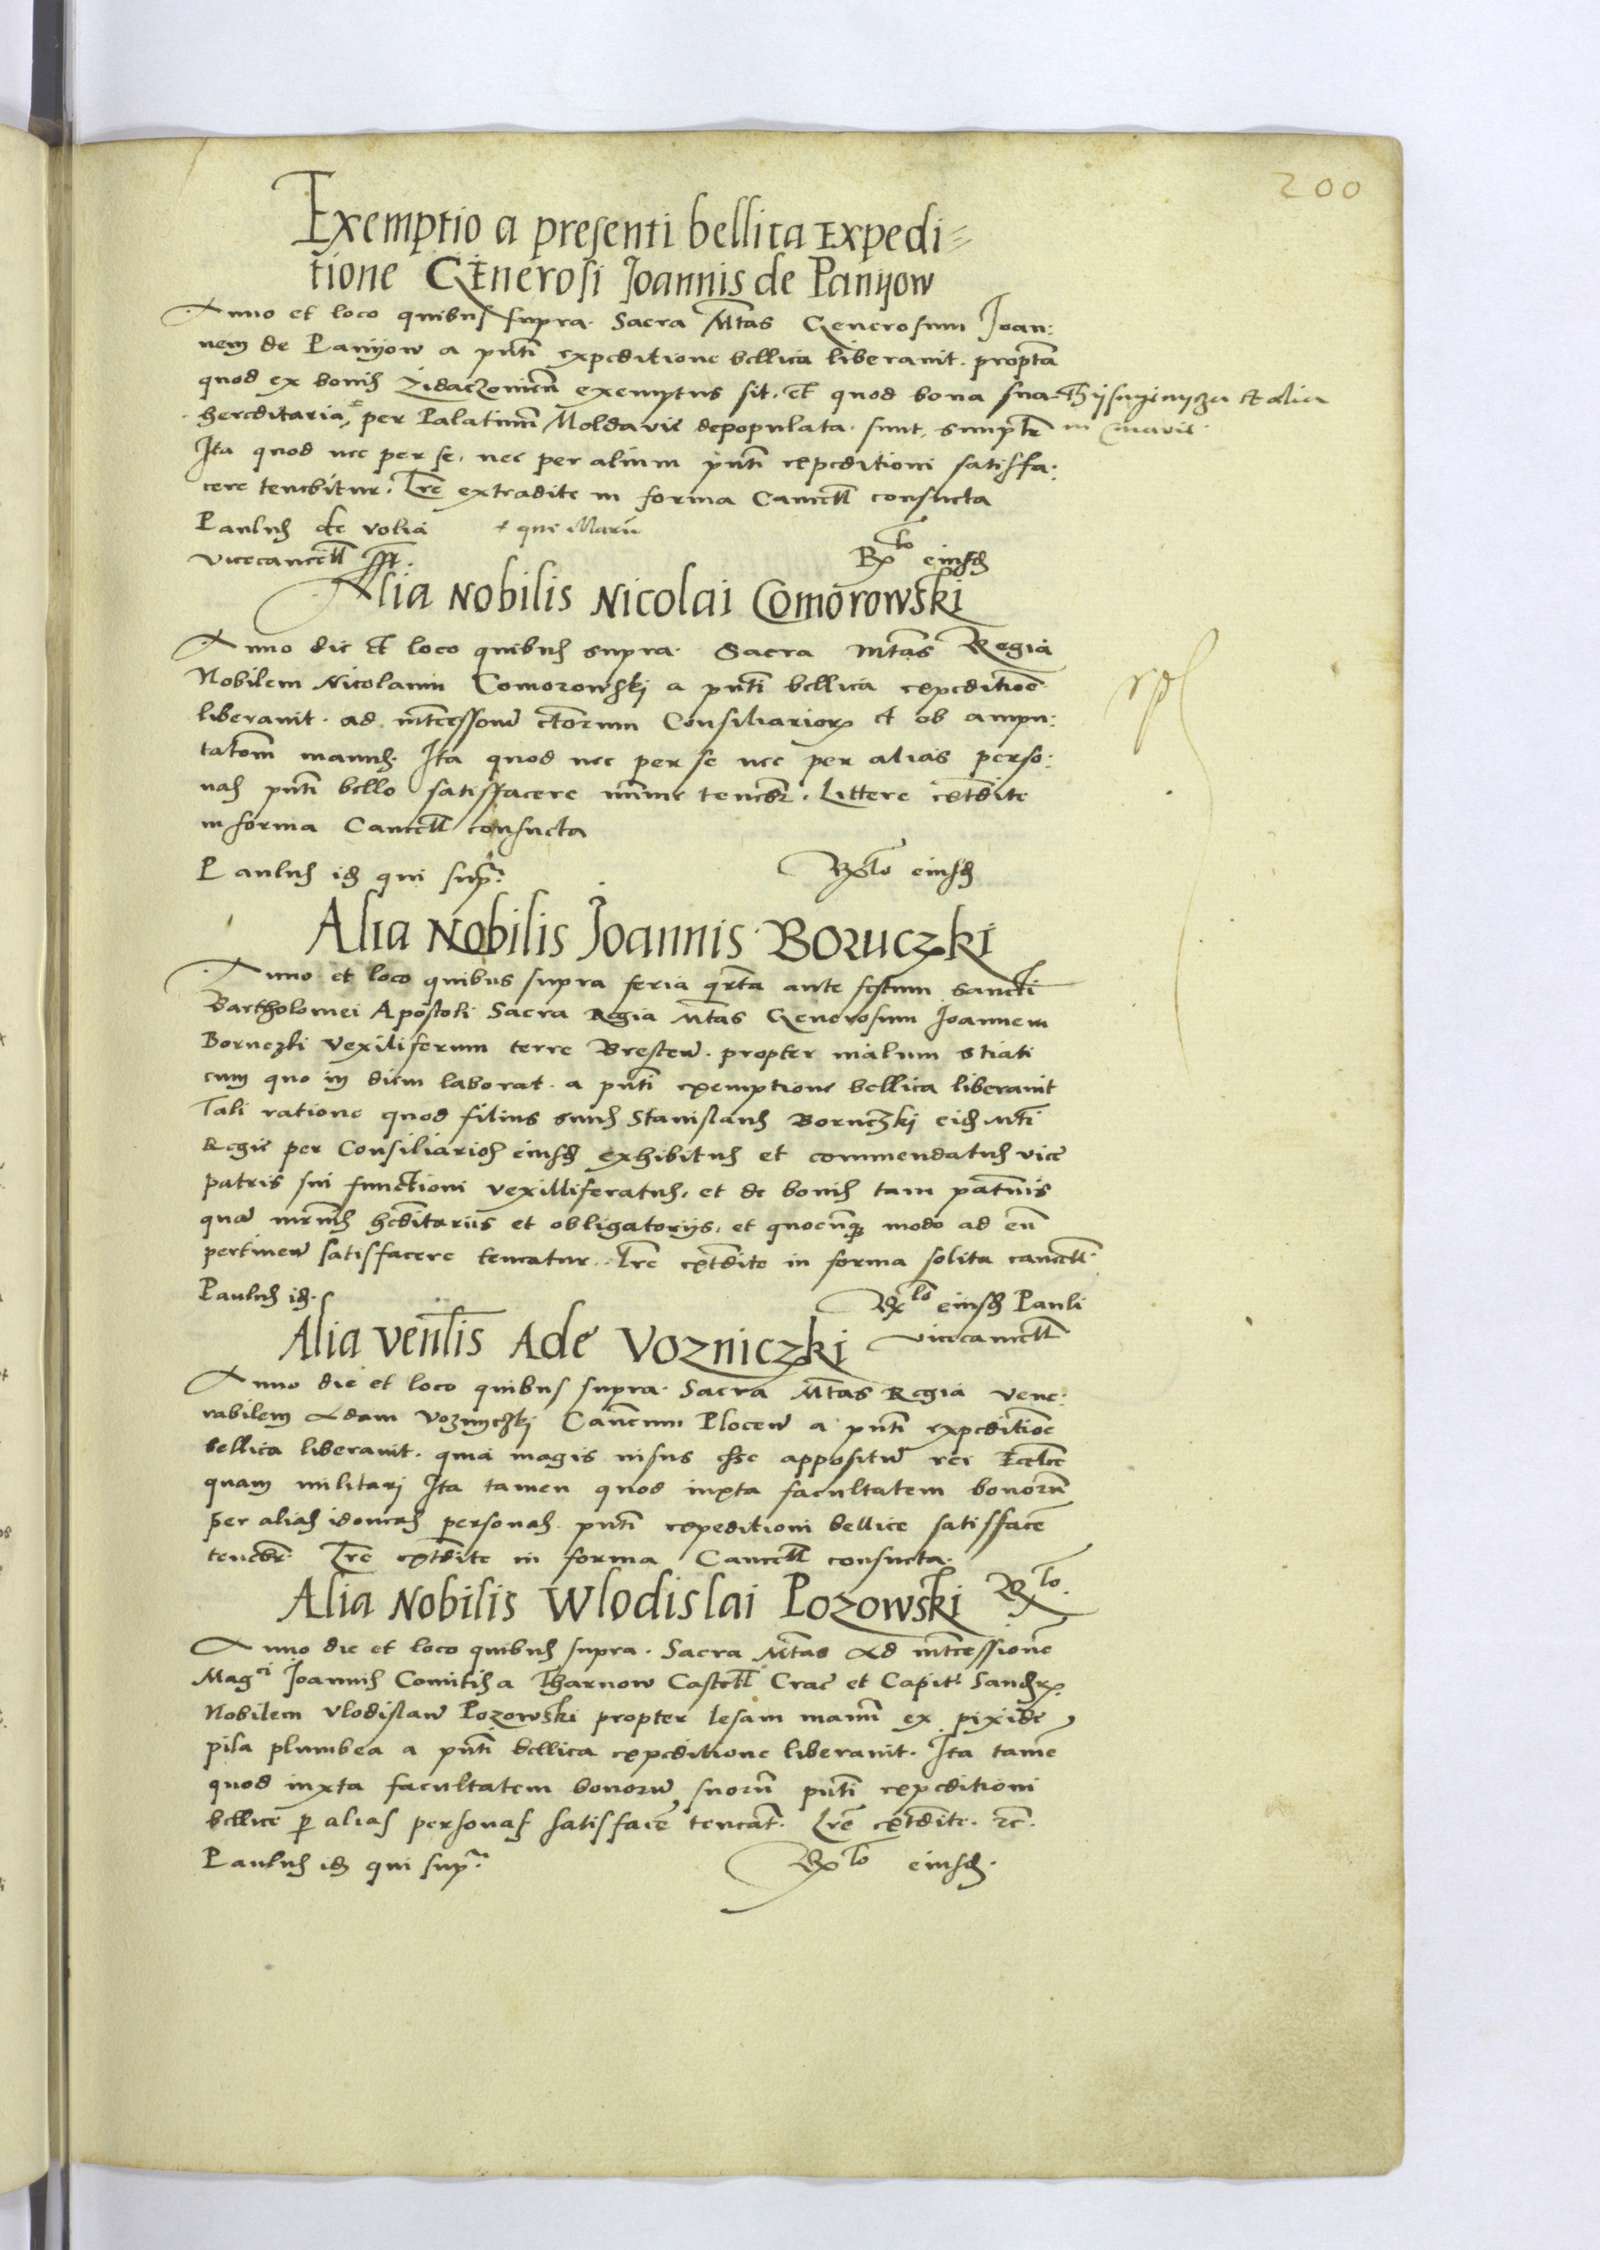 200
Exemptio a presenti bellica Expedi=
tione GEnerosi Joannis de Panijow
Anno et loco quibus supra. Sacra Mtas Generosum Joan:
nem de Panijow a pnti expeditione bellica liberavit. propta
quod ex bonis Zidaczoviens exemptus sit. Et quod bona sua et alia
hereditaria, per Palatinum Moldavie depopulata. sunt,
Ita quod nec per se, nec per alium pnti expeditioni satisfa:
cere tenebitur. Lre extradite in forma Cancell consueta
Paulus de volia
vicecancell sst.
Rlo eiusd
Alia Nobilis Nicolai Comorowski
Anno die et loco quibus supra. Sacra Mtas Regia
Nobilem Nicolaum Comorowski a pnti bellica expeditioe
liberavit. ad intcessione ctorum Consiliarior et ob ampu:
tatom manus. Ita quod nec per se nec per alias perso:
nas pnti bello satisfacere minime tenebr. Littere extdite
in forma Cancell consueta
Paulus id qui sup.
Rlo eiusd
Alia Nobilis Joannis Boruczki
Anno et loco quibus supra feria qrta ante festum sancti
Bartholomei Apostoli Sacra Regia Mtas Generosum Joannem
Boruczki vexiliferum terre Bresten. propter malum stiati
cum quo in diem laborat. a pnti exemptione bellica liberavit
Tali ratione quod filius suus Stanislaus Boruczki eid Mti
Regie per Consiliarios eiusd exhibitus et commendatus vice
patris sui functioni vexilliferatus, et de bonis tam patnis
qua mrnis heditariis et obligatoriis, et quocunq modo ad eu
pertinen satisfacere teneatur. Lre extdite in forma solita cancell.
Paulus id.
Rlo eiusd Pauli
vicecancell
Alia Venlis Ade Vozniczki
Anno die et loco quibus supra. Sacra Mtas Regia vene:
rabilem Adam Vozniczki Cancum Plocen a pnti expeditioe
bellica liberavit. quia magis visus esse appositu rei Eccle
quam militari Ita tamen quod iuxta facultatem bonoru
per alias idoneas personas pnti expeditioni bellice satisface
tenebr. Lre extdite in forma Cancell consueta.
Rlo.
Alia Nobilis Wlodislai Pozowski
Anno die et loco quibus supra. Sacra Mtas Ad intcessione
Magci Joannis Comitis a Tharnow Castell Crac et Capit
Nobilem Vlodislau Pozowski propter lesam manu ex pixide
pila plumbea a pnti bellica expeditione liberavit. Ita tame
quod iuxta facultatem bonoru suoru pnti expeditioni
bellice p alias personas satisface teneat. Lre extdite. etc.
Paulus id qui sup.
Rlo eiusd.